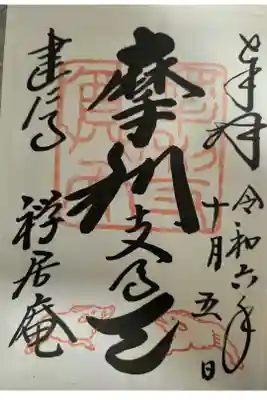 奉拝
令和六年
十月五日
摩利支尊天
禅居庵